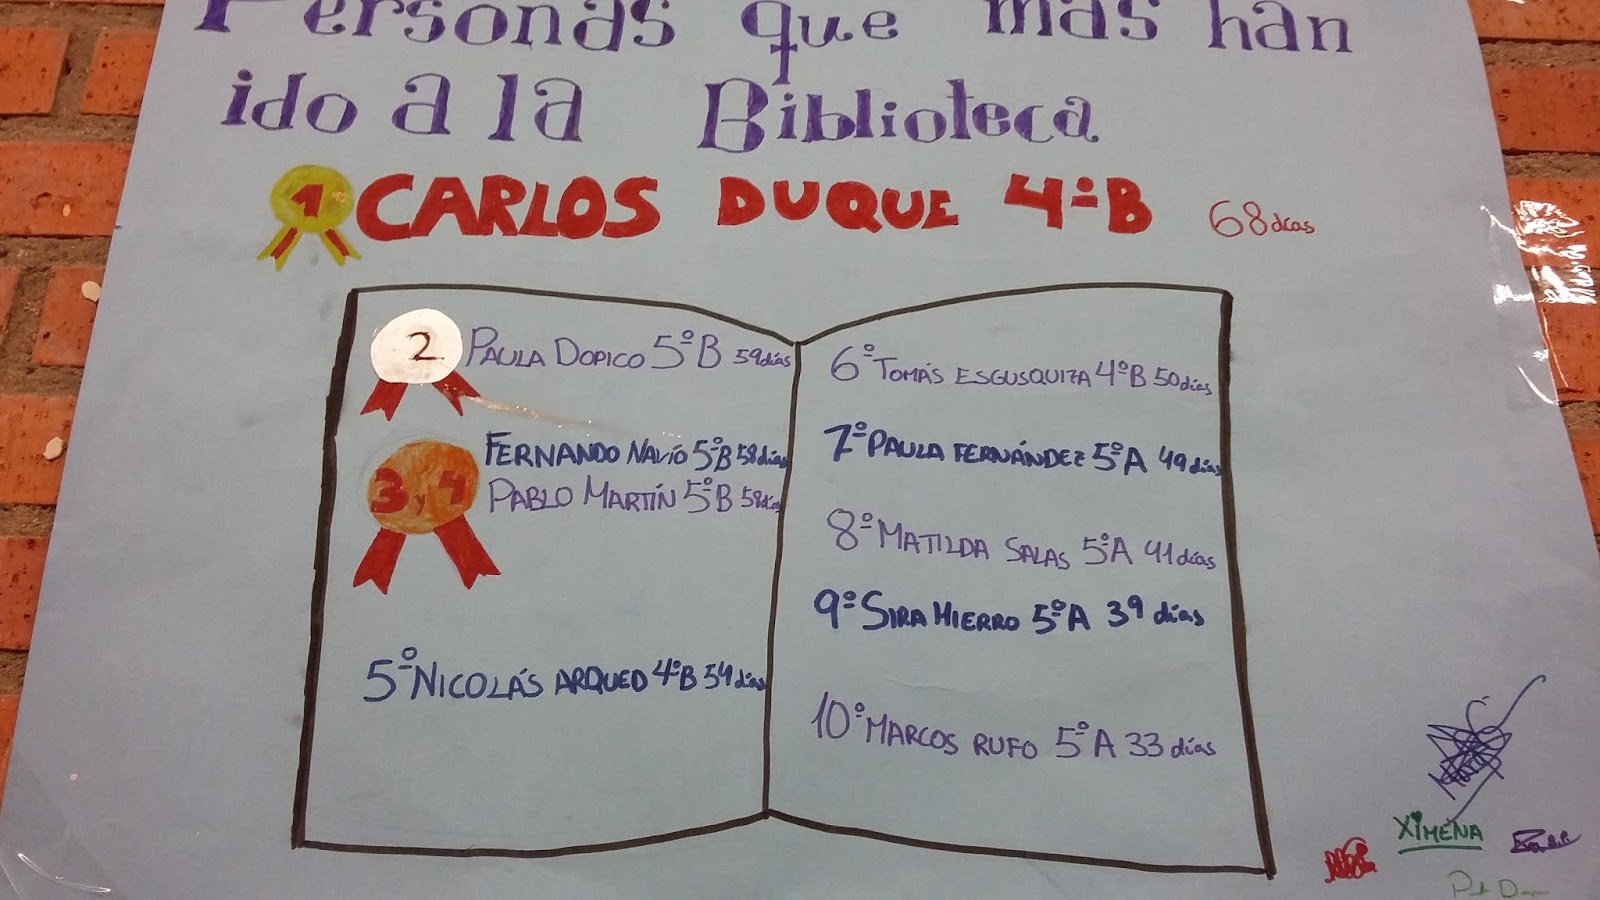 Personas que más han
ido a la Biblioteca
1 CARLOS DUQUE 4ºB 68 días
2 PAULA DOPICO 5ºB 59 días
3 y 4
FERNANDO NAVÍO 5ºB 58 días
PABLO MARTÍN 5ºB 58 días
5º NICOLÁS ARQUED 4ºB 54 días
6º TOMÁS ESGUSQUIZA 4ºB 50 días
7º PAULA FERNÁNDEZ 5ºA 49 días
8º MATILDA SALAS 5ºA 41 días
9º SIRA HIERRO 5ºA 39 días
10º MARCOS RUFO 5ºA 33 días
XIMENA